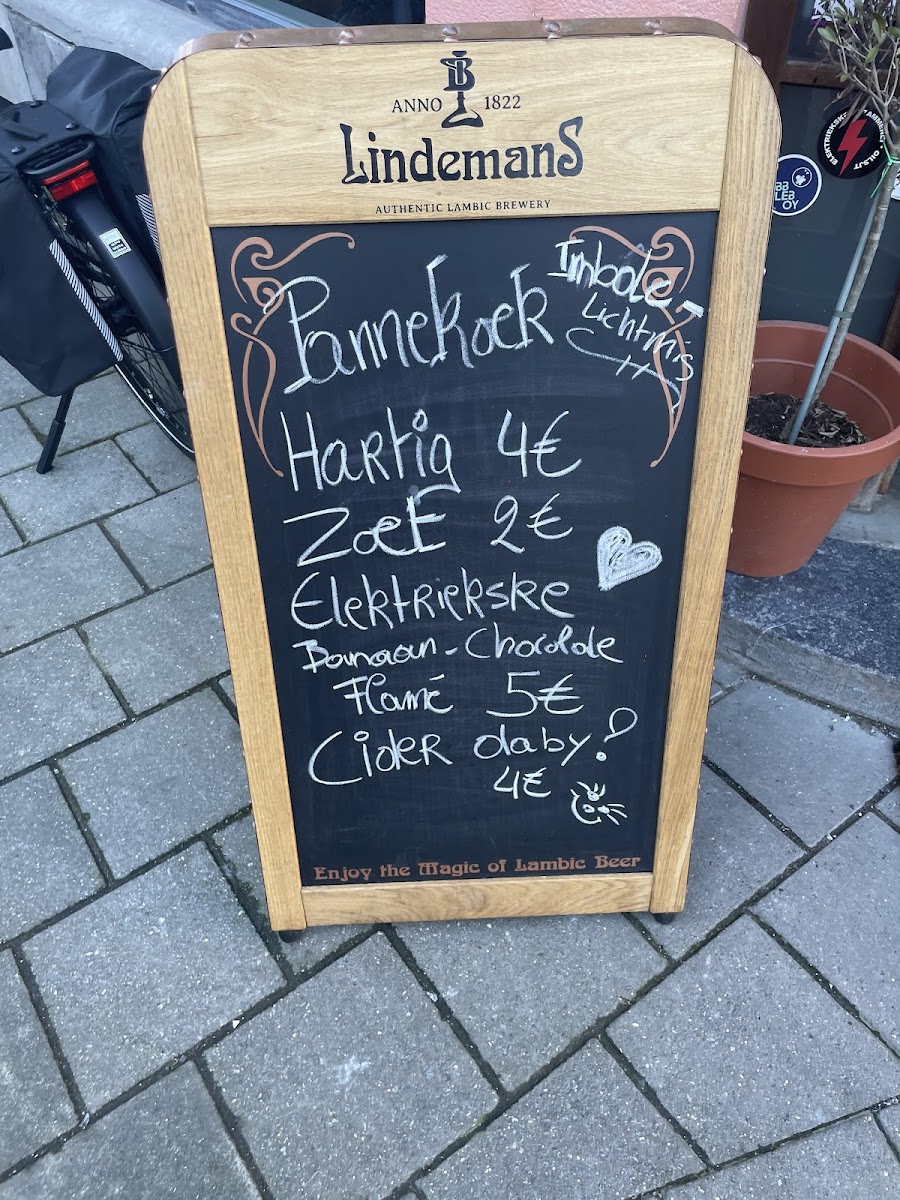 ANNO 1822
LindemanS
AUTHENTIC LAMBIC BREWERY
Imbolc -
Lichtmis
Pannekoek
Hartig 4€
Zoet 2€
Elektriekske
Banaan - Chocolde
Flamé 5€
Cider daby?
4€
Enjoy the Magic of Lambic Beer
BB
LEB
OY